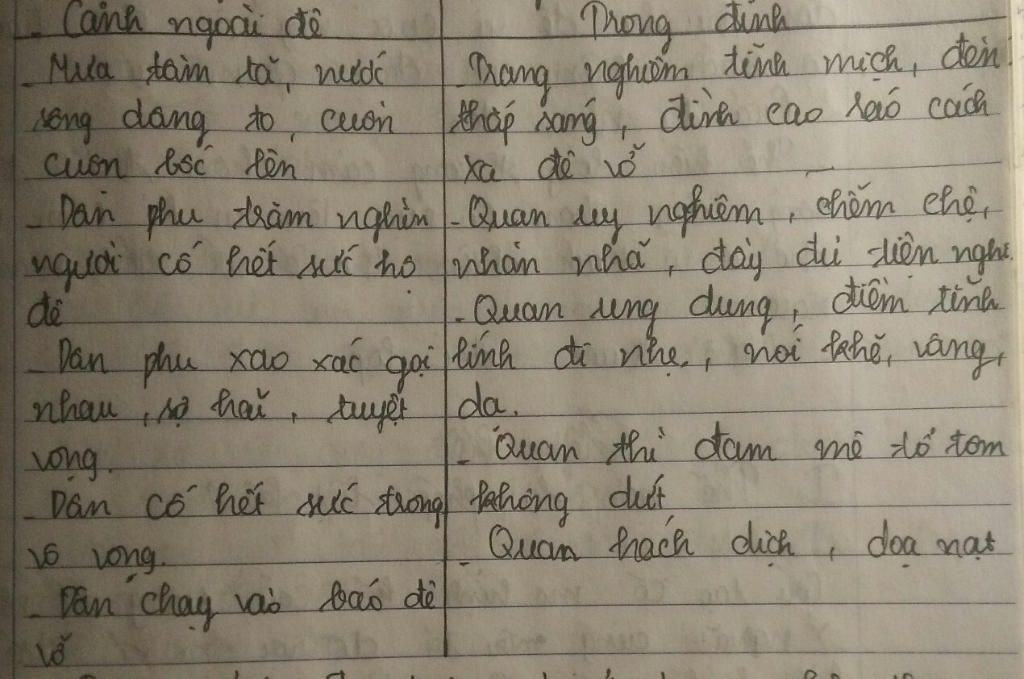 - Cảnh ngoài đê
- Mưa tầm tã, nước
sông dâng to, cuồn
cuộn bốc lên
- Dân phu trăm nghìn
người cố hết sức hộ
đê
- Dân phu xao xác gọi
nhau, sợ hãi, tuyệt
vọng.
- Dân cố hết sức trong
vô vọng.
- Dân chạy vào báo đê
vỡ
Trong đình
- Trang nghiêm tĩnh mịch, đèn
thắp sáng, đình cao ráo cách
xa đê vỡ
- Quan uy nghiêm, chễm chệ,
nhàn nhã, đầy đủ tiện nghi.
- Quan ung dung, điềm tĩnh
lính đi nhẹ, nói khẽ, vâng,
dạ.
- Quan thì đam mê tổ tôm
không dứt
- Quan hách dịch, doạ nạt